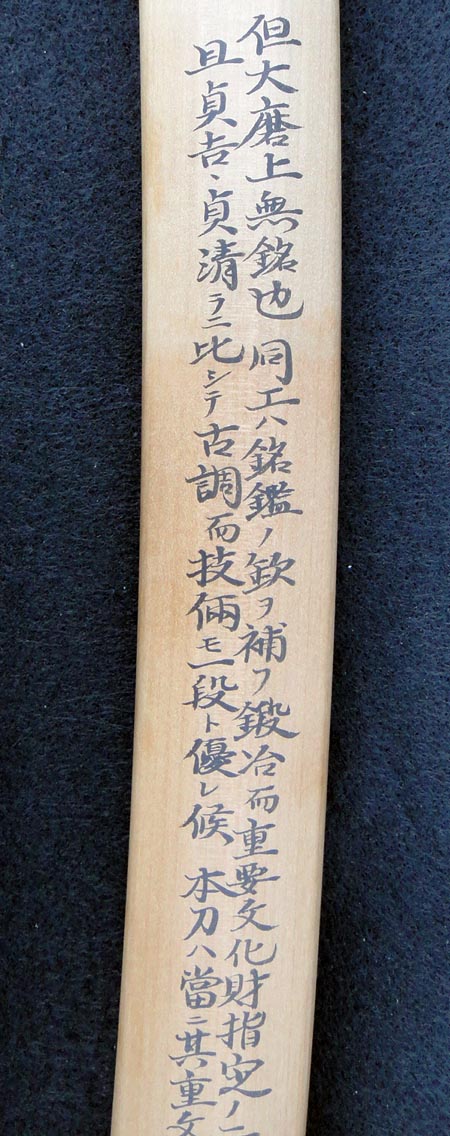 但大磨上無銘也 同工ハ銘鑑ノ欽ヲ補フ鍛冶而重要文化財指定ノ二
且貞吉、貞清ラニ比シテ古調而技倆モ一段ト優レ候 本刀ハ當ニ其重文